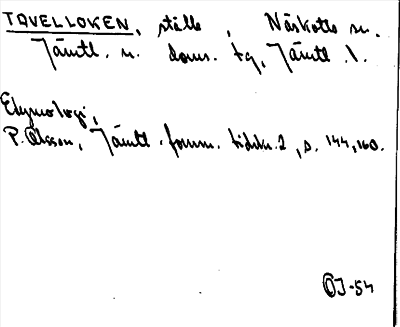 TAVELLOKEN, ställe, Näskotts sn.
Jämtl. n. doms. tg, Jämtl. l.
Etymologi,
P. Olsson, Jämtl. fornm. tidskr. 2, s. 144, 160.
ÖJ-54